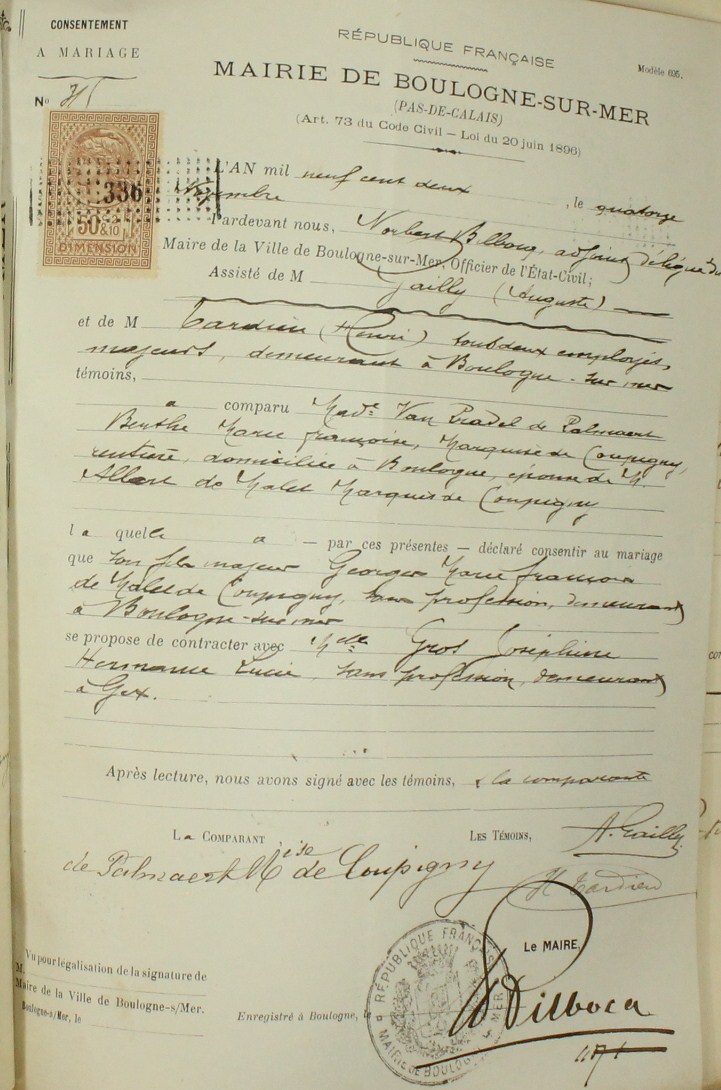 CONSENTEMENT
A MARIAGE
No
RÉPUBLIQUE FRANÇAISE
Modèle 695.
MAIRIE DE BOULOGNE-SUR-MER
(PAS-DE-CALAIS)
(Art. 73 du Code Civil — Loi du 20 juin 1896)
336
50 & 10
DIMENSION
L'AN mil neuf cent deux, le quatorze
novembre
Pardevant nous, Norbert Bilbocq, adjoint délégué du
Maire de la Ville de Boulogne-sur-Mer, Officier de l'État-Civil;
Assisté de M Gailly (Auguste)
et de M Tardieu (Henri) tous deux employés,
majeurs, demeurant à Boulogne-sur-mer
témoins,
a comparu Made Van Pradel de Palmaert
Berthe Marie Françoise, Marquise de Coupigny,
rentière, domiciliée à Boulogne, épouse de M.
Albert de Malet Marquis de Coupigny
la quelle a — par ces présentes — déclaré consentir au mariage
que son fils majeur Georges Marie François
de Malet de Coupigny, sans profession, demeurant
à Boulogne-sur-mer
se propose de contracter avec Mdelle Gros Joséphine
Hermance Lucie, sans profession, demeurant
à Gex.
Après lecture, nous avons signé avec les témoins, & la comparante
La COMPARANT
LES TÉMOINS,
A. Gailly
de Palmaert Mise de Coupigny
H Tardieu
LE MAIRE,
Bilbocq
RÉPUBLIQUE FRANÇAISE
MAIRIE DE BOULOGNE S. MER
Vu pour légalisation de la signature de
M.
Maire de la Ville de Boulogne-s/Mer.
Boulogne-s/Mer, le
Enregistré à Boulogne, le